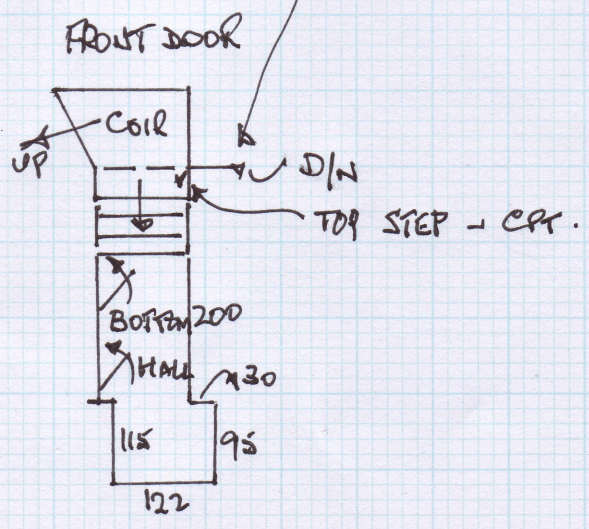 FRONT DOOR
COIR
UP
D/N
TOP STEP - CPT.
BOTTOM 200
HALL
30
115
95
122